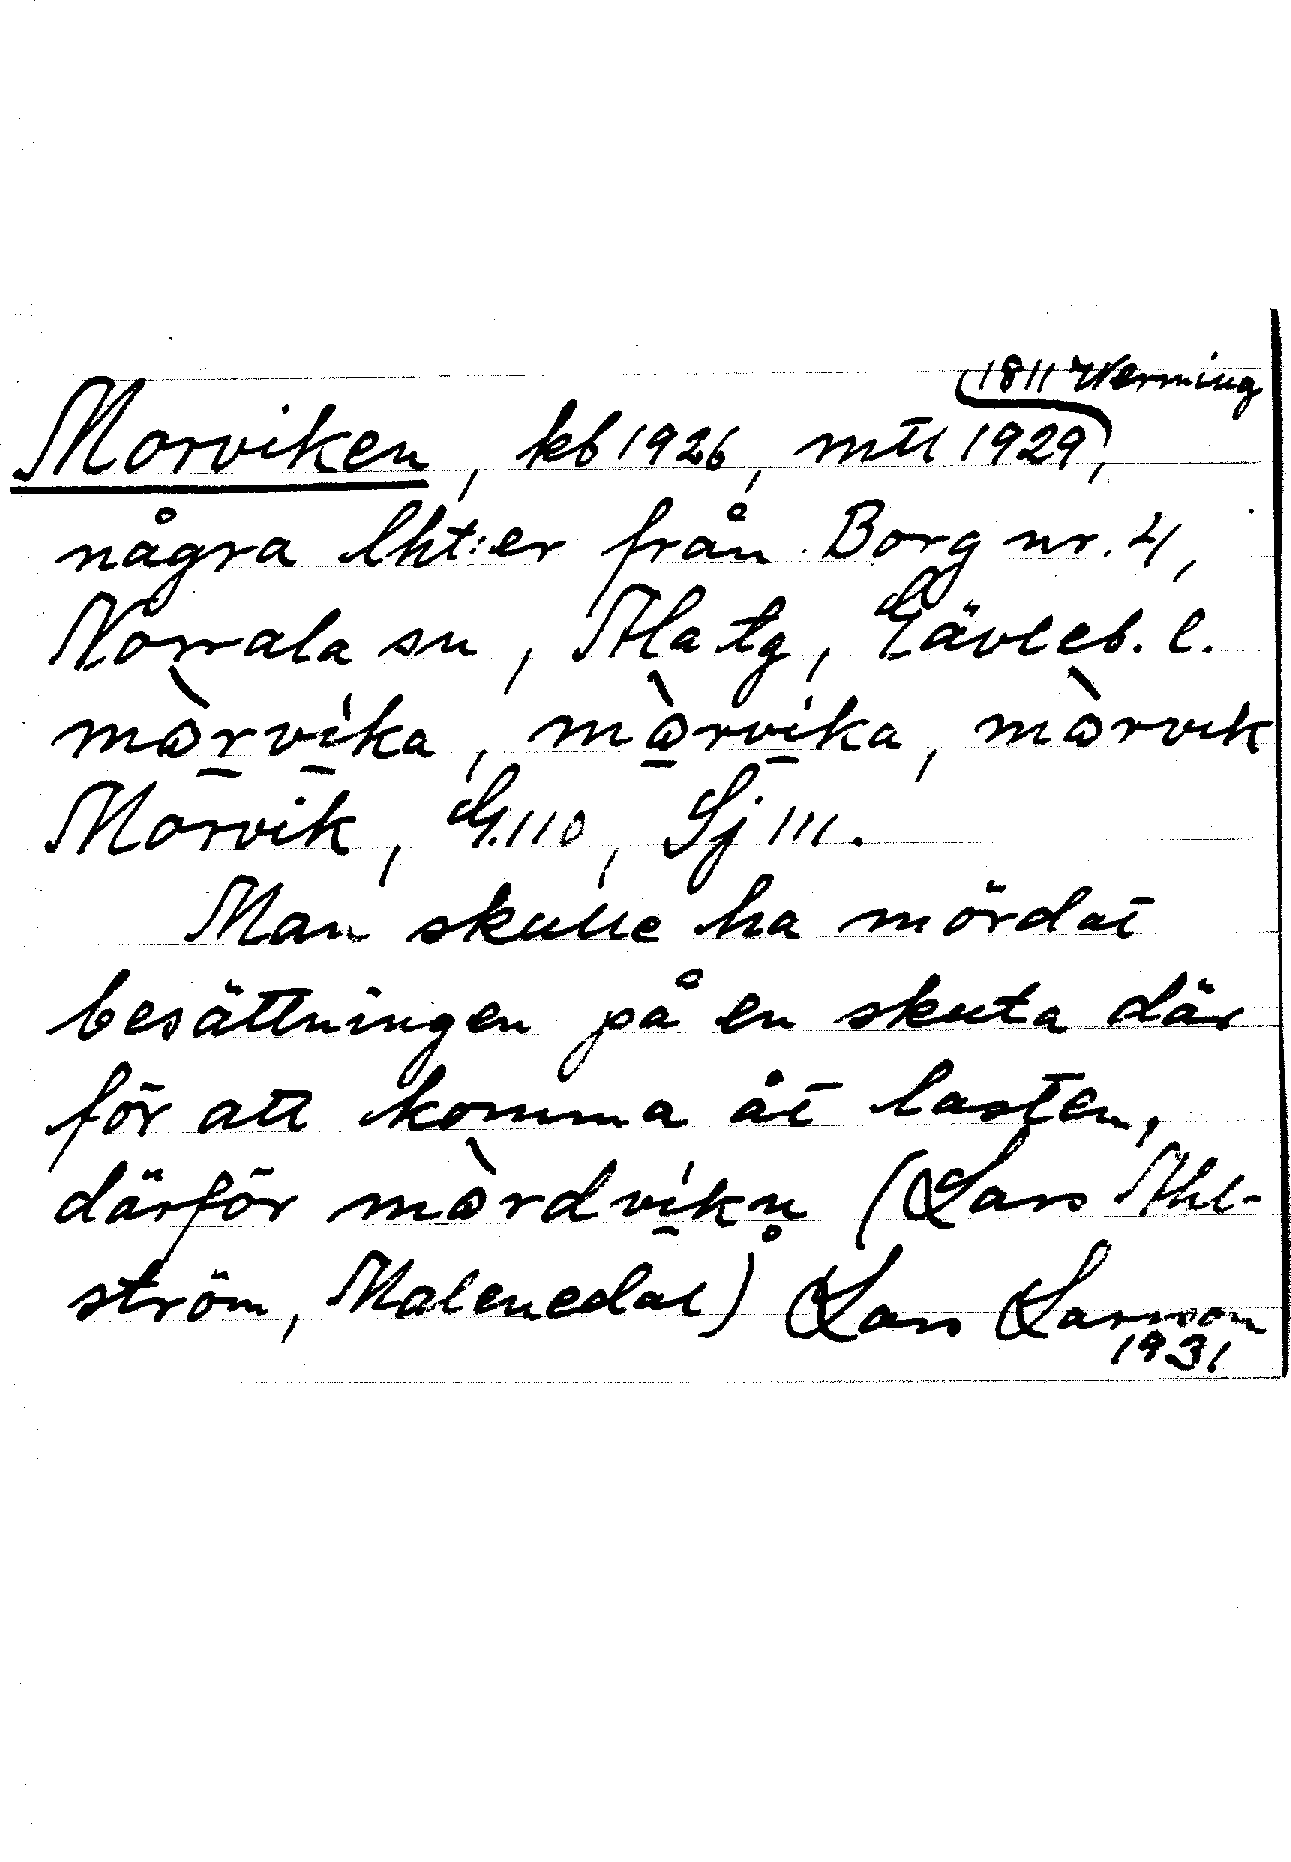 1811 Werming
Morviken, kb 1926, mtl 1929,
några lht:er från Borg nr. 4,
Norrala sn, Ala tg, Gävleb. l.
mòrvíka, mòrvika, mòrvik
Morvik, G.110, Sj 111.
Man skulle ha mördat
besättningen på en skuta där
för att komma åt lasten,
därför mòrdvíkn̥ (Lars Ahl-
ström, Malenedal) Lars Larsson
1931